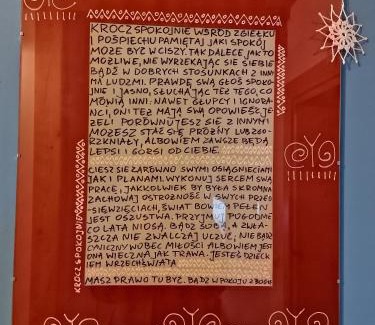 KROCZ SPOKOJNIE WŚRÓD ZGIEŁKU
I POŚPIECHU PAMIĘTAJ JAKI SPOKÓJ
MOŻE BYĆ W CISZY. TAK DALECE JAK TO
MOŻLIWE, NIE WYRZEKAJĄC SIĘ SIEBIE
BĄDŹ W DOBRYCH STOSUNKACH Z INNY
MI LUDŹMI. PRAWDĘ SWĄ GŁOŚ SPOKO-
JNIE I JASNO, SŁUCHAJĄC TEŻ TEGO, CO
MÓWIĄ INNI: NAWET GŁUPCY I IGNORA-
NCI, ONI TEŻ MAJĄ SWĄ OPOWIEŚĆ, JE-
ŻELI PORÓWNUJESZ SIĘ Z INNYMI
MOŻESZ STAĆ SIĘ PRÓŻNY LUB ZGO-
RZKNIAŁY, ALBOWIEM ZAWSZE BĘDĄ
LEPSI I GORSI OD CIEBIE.
CIESZ SIĘ ZARÓWNO SWYMI OSIĄGNIĘCIAMI
JAK I PLANAMI. WYKONUJ SERCEM SWĄ
PRACĘ, JAKKOLWIEK BY BYŁA SKROMNA
ZACHOWAJ OSTROŻNOŚĆ W SWYCH PRZED-
SIĘWZIĘCIACH, ŚWIAT BOWIEM PEŁEN
JEST OSZUSTWA. PRZYJMUJ POGODNIE
CO LATA NIOSĄ. BĄDŹ SOBĄ, A ZWŁA-
SZCZA NIE ZWALCZAJ UCZUĆ, NIE BĄDŹ
CYNICZNY WOBEC MIŁOŚCI ALBOWIEM JEST
ONA WIECZNA JAK TRAWA. JESTEŚ DZIECK
IEM WRZECHŚWIATA
MASZ PRAWO TU BYĆ. BĄDŹ W POKOJU Z BOGIEM
KROCZ SPOKOJNIE